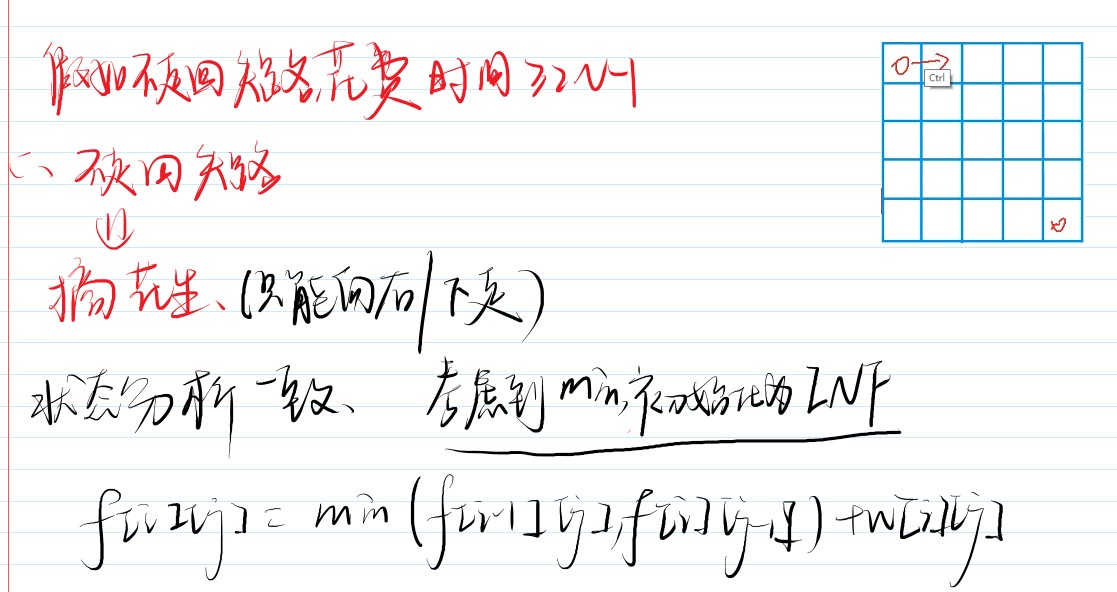 假如不走回头路,花费时间≥2N-1
∴ 不走回头路
⇓
摘花生、(只能向右/下走)
状态分析一致、 考虑到min,初始化为INF
f[i][j] = min(f[i-1][j],f[i][j-1]) +w[i][j]
Ctrl